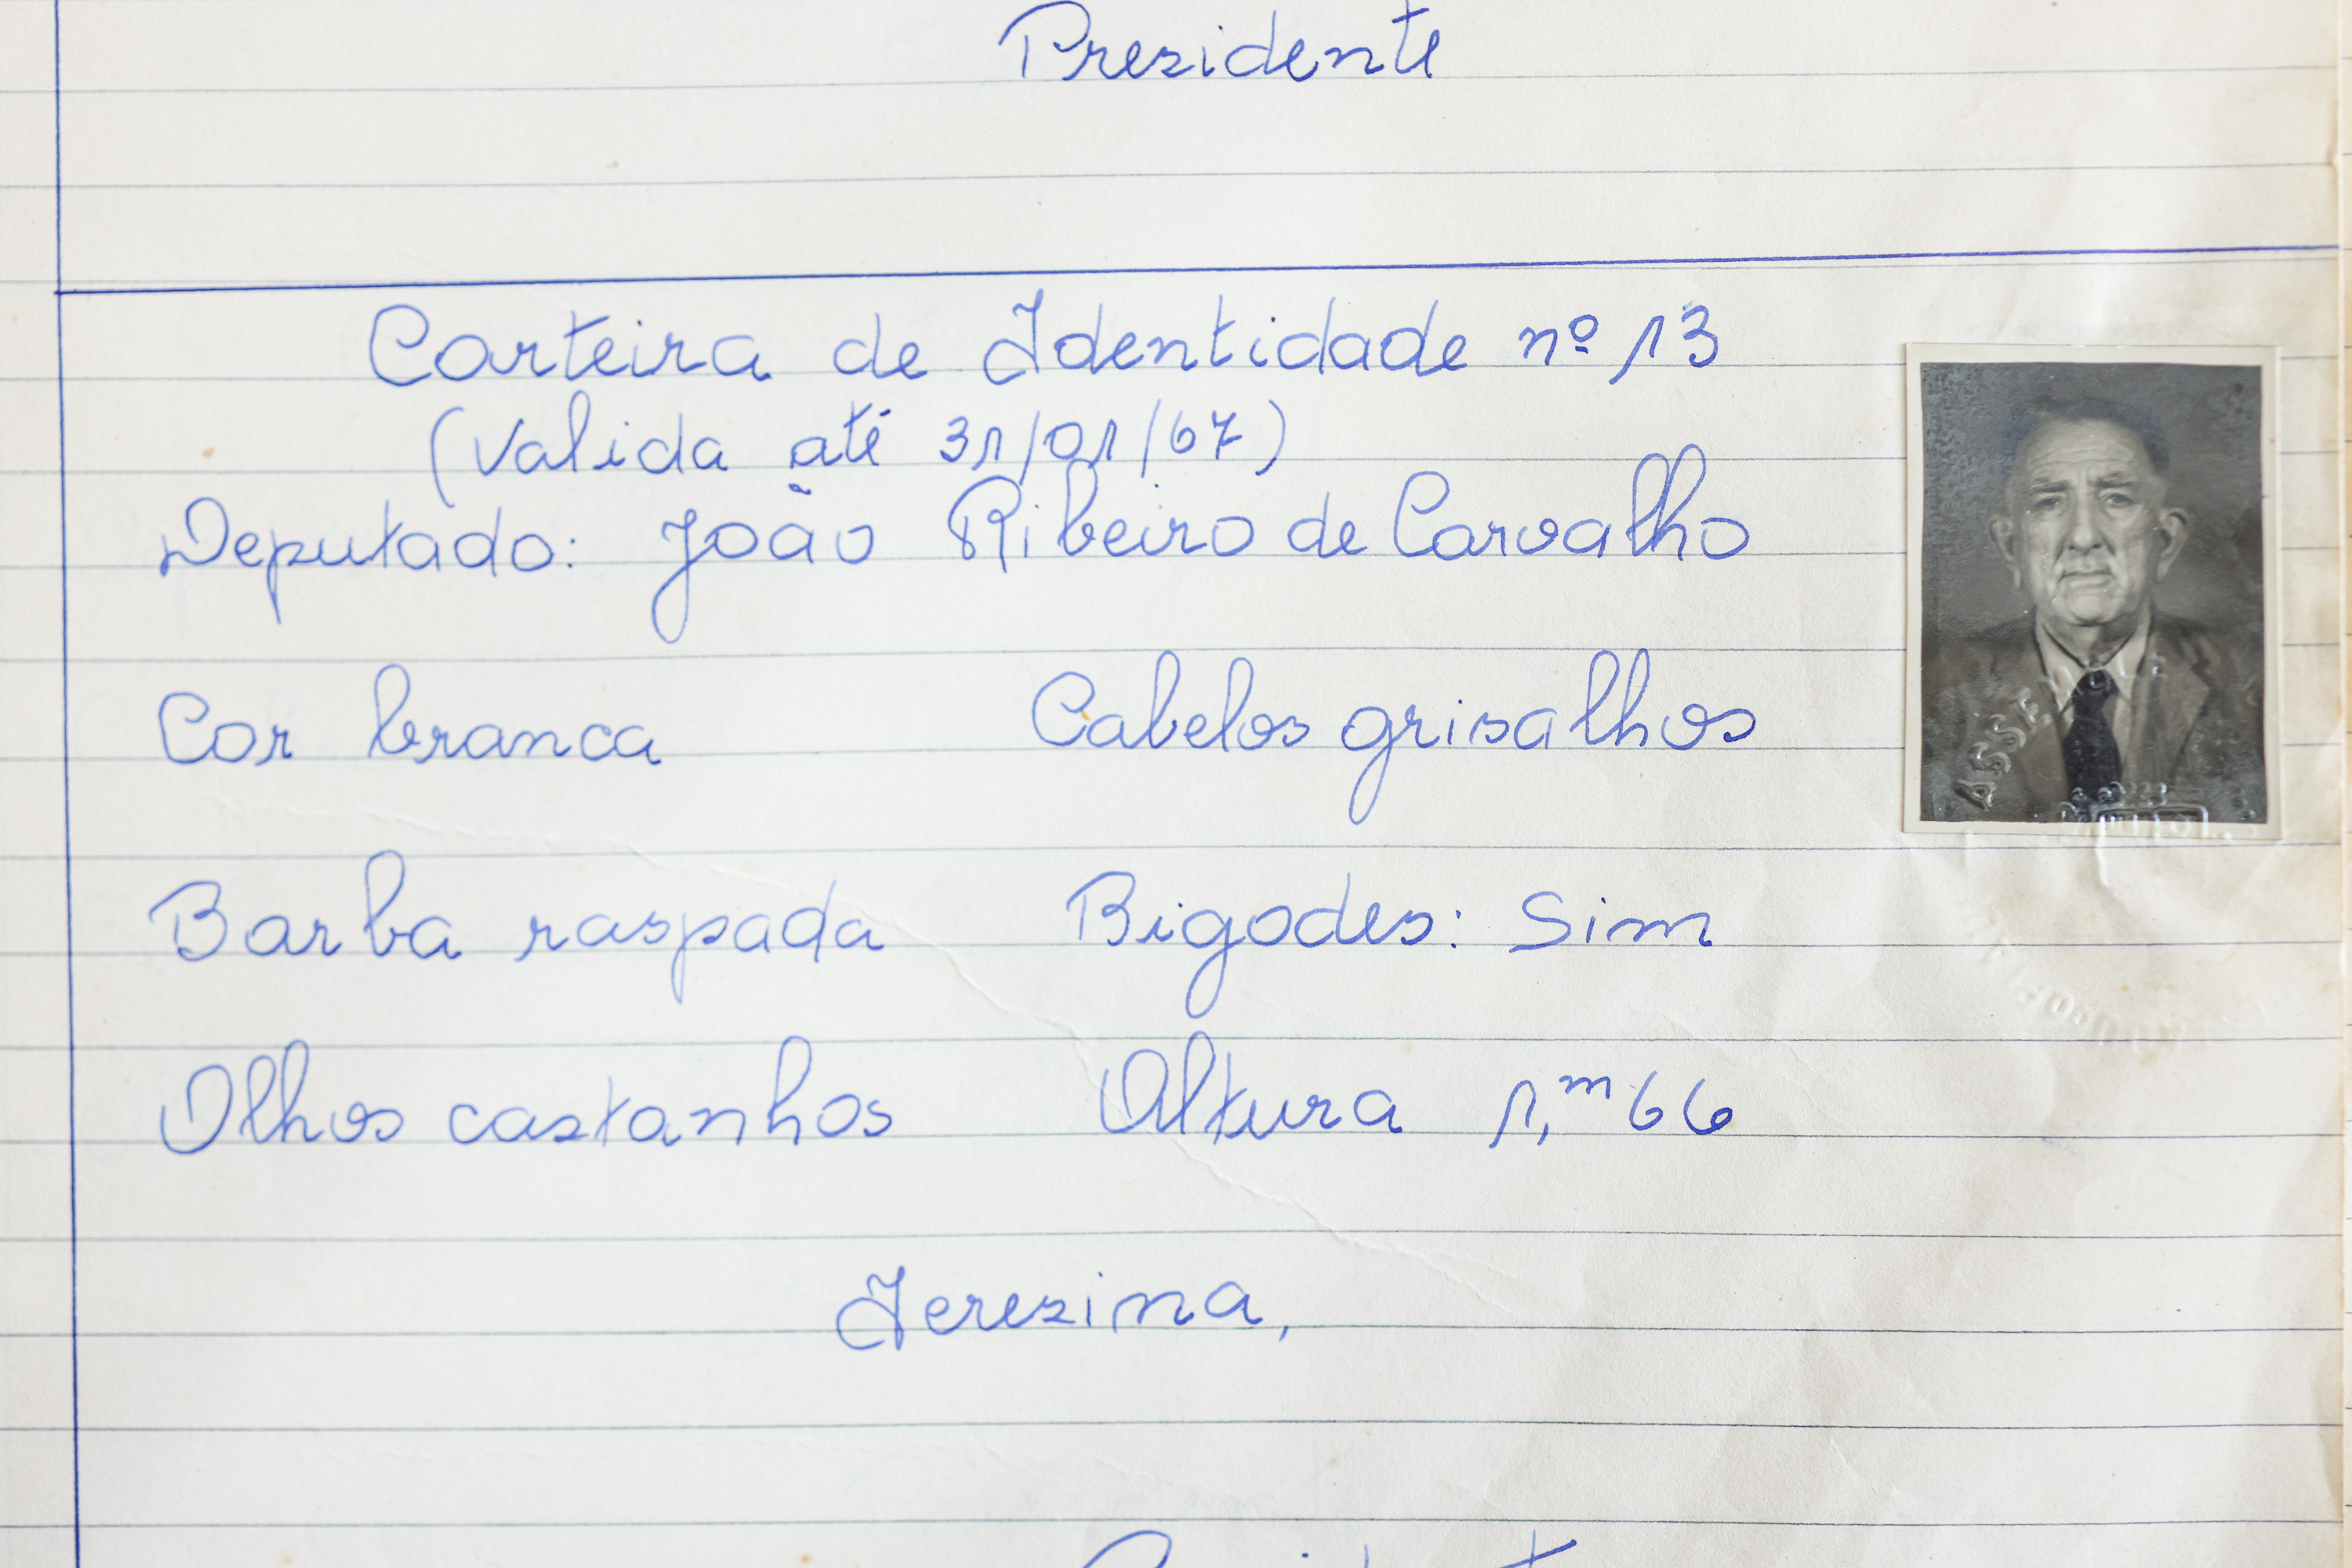 Prezidente
Carteira de Identidade nº 13
(Valida até 31/01/67)
Deputado: João Ribeiro de Carvalho
Cor branca Cabelos grisalhos
Barba raspada Bigodes: Sim
Olhos castanhos Altura 1,m66
Terezina,